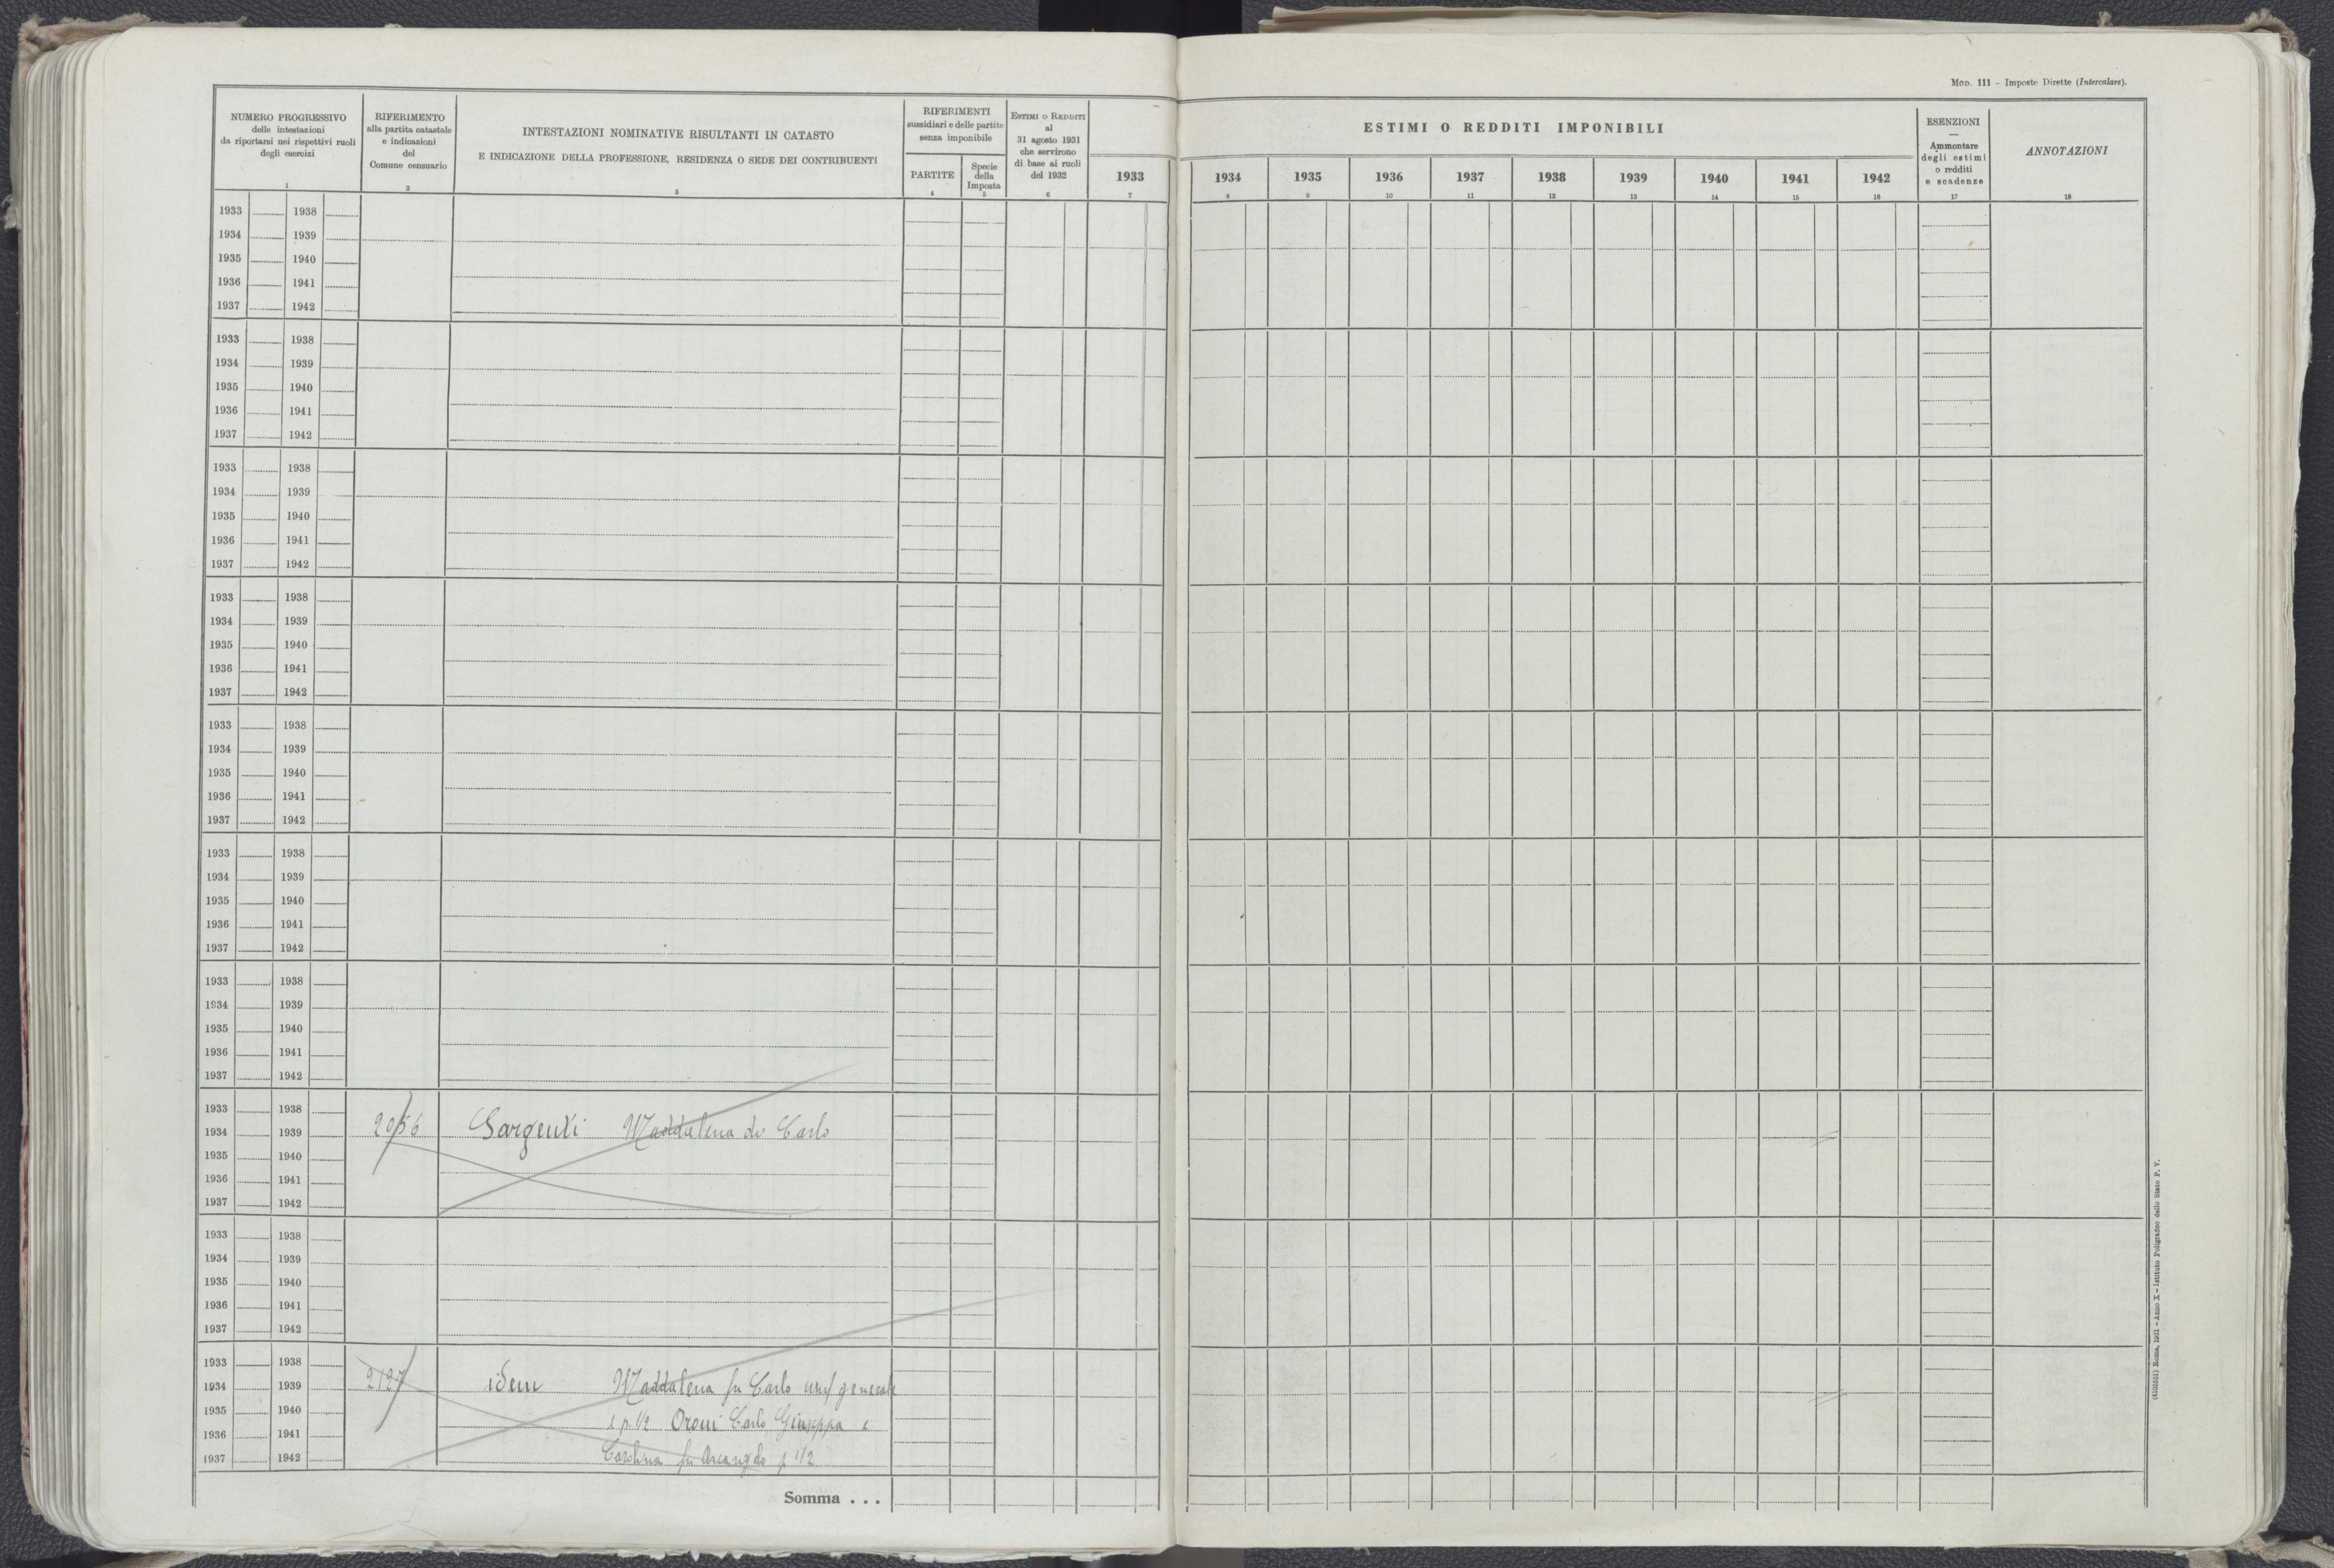 Mod. 111 – Imposte Dirette (Intercalare).
NUMERO PROGRESSIVO
delle intestazioni
da riportarsi nei rispettivi ruoli
degli esercizi
1
RIFERIMENTO
alla partita catastale
e indicazioni
del
Comune censuario
2
INTESTAZIONI NOMINATIVE RISULTANTI IN CATASTO
E INDICAZIONE DELLA PROFESSIONE, RESIDENZA O SEDE DEI CONTRIBUENTI
3
RIFERIMENTI
sussidiari e delle partite
senza imponibile
PARTITE
4
Specie
della
Imposta
5
ESTIMI O REDDITI
al
31 agosto 1931
che servirono
di base ai ruoli
del 1932
6
1933
7
ESTIMI O REDDITI IMPONIBILI
1934 1935 1936 1937 1938 1939 1940 1941 1942
8 9 10 11 12 13 14 15 16
ESENZIONI
—
Ammontare
degli estimi
o redditi
e scadenze
17
ANNOTAZIONI
18
1933 1938
1934 1939
1935 1940
1936 1941
1937 1942
1933 1938
1934 1939
1935 1940
1936 1941
1937 1942
1933 1938
1934 1939
1935 1940
1936 1941
1937 1942
1933 1938
1934 1939
1935 1940
1936 1941
1937 1942
1933 1938
1934 1939
1935 1940
1936 1941
1937 1942
1933 1938
1934 1939
1935 1940
1936 1941
1937 1942
1933 1938
1934 1939
1935 1940
1936 1941
1937 1942
1933 1938
1934 1939 2056 Sargenti Maddalena di Carlo
1935 1940
1936 1941
1937 1942
1933 1938
1934 1939
1935 1940
1936 1941
1937 1942
1933 1938
1934 1939 2127 idem Maddalena fu Carlo usuf generale
1935 1940 p. 1/2 Oreni Carlo Giuseppa e
1936 1941
1937 1942 Carolina fu Arcangelo p 1/2
Somma . . .
Roma, 1931 – Anno X – Istituto Poligrafico dello Stato P. V.